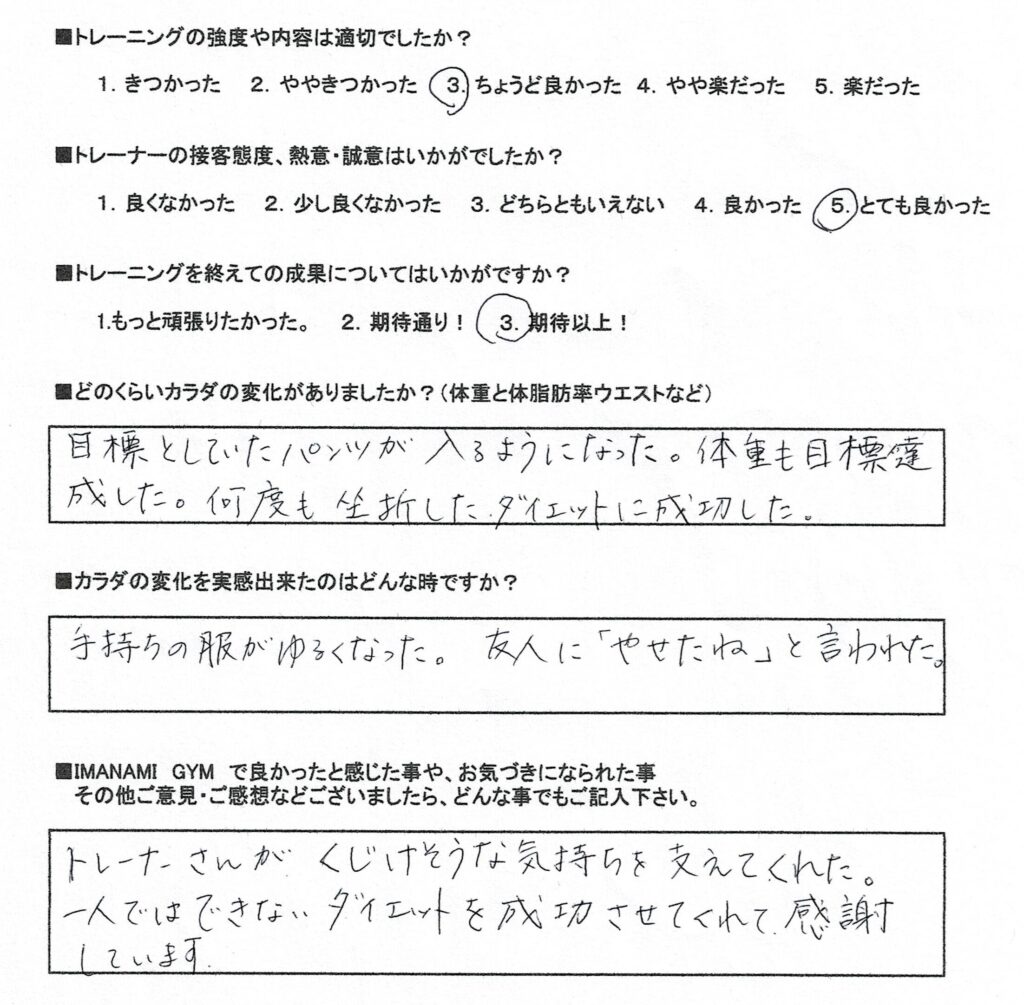 ■トレーニングの強度や内容は適切でしたか？
1. きつかった　2. ややきつかった　3. ちょうど良かった　4. やや楽だった　5. 楽だった
■トレーナーの接客態度、熱意・誠意はいかがでしたか？
1. 良くなかった　2. 少し良くなかった　3. どちらともいえない　4. 良かった　5. とても良かった
■トレーニングを終えての成果についてはいかがですか？
1.もっと頑張りたかった。　2. 期待通り！　3. 期待以上！
■どのくらいカラダの変化がありましたか？（体重と体脂肪率ウエストなど）
目標としていたパンツが入るようになった。体重も目標達
成した。何度も坐折したダイエットに成功した。
■カラダの変化を実感出来たのはどんな時ですか？
手持ちの服がゆるくなった。　友人に「やせたね」と言われた。
■IMANAMI　GYM　で良かったと感じた事や、お気づきになられた事
その他ご意見・ご感想などございましたら、どんな事でもご記入下さい。
トレーナーさんが　くじけそうな気持ちを支えてくれた。
一人ではできないダイエットを成功させてくれて感謝
しています.